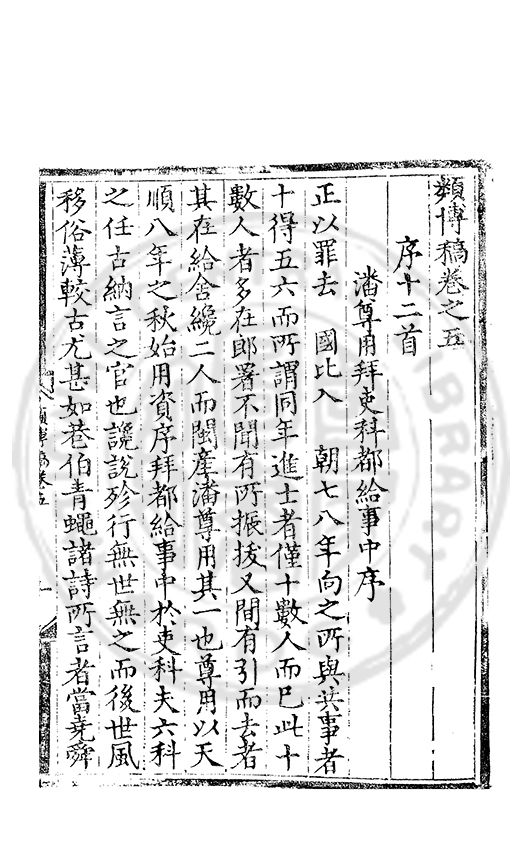 類博稿卷之五
序十二首
潘尊用拜吏科都給事中序
正以罪去 國比入 朝七八年向之所與共事者
十得五六而所謂同年進士者僅十數人而已此十
數人者多在郎署不聞有所振拔又間有引而去者
其在給舍纔二人而閩產潘尊用其一也尊用以天
順八年之秋始用資序拜都給事中於吏科夫六科
之任古納言之官也讒說殄行無世無之而後世風
移俗薄較古尤甚如巷伯青蠅諸詩所言者當堯舜
類博稿卷五
一